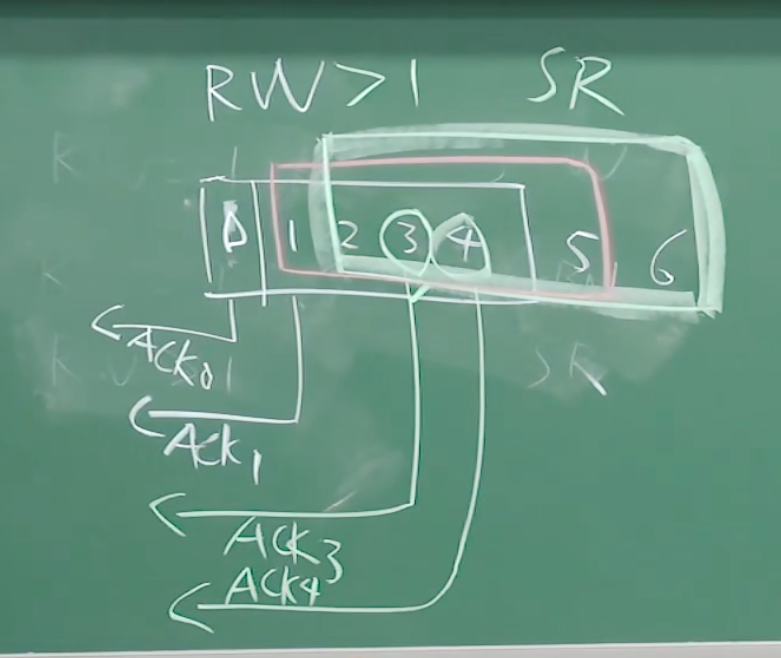 RW>1 SR
0 1 2 3 4 5 6
ACK0
ACK1
ACK3
ACK4
SR